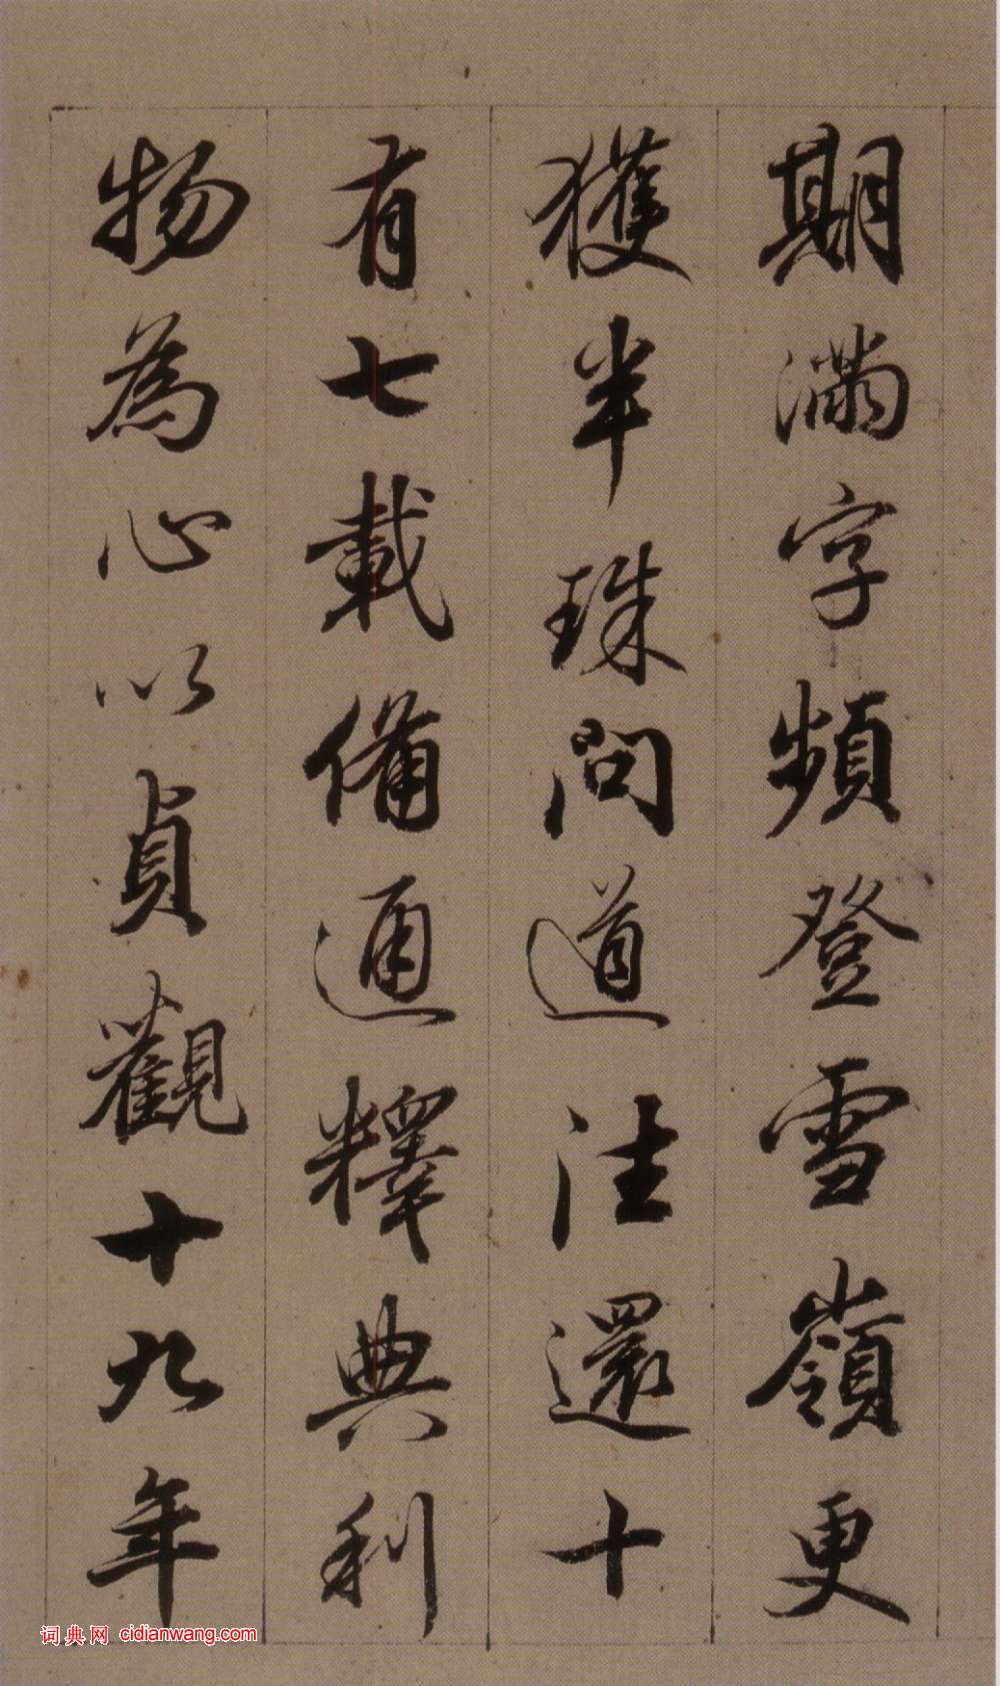 期滿字頻登雪嶺更
獲半珠問道往還十
有七載備通釋典利
物為心以貞觀十九年
词典网 cidianwang.com